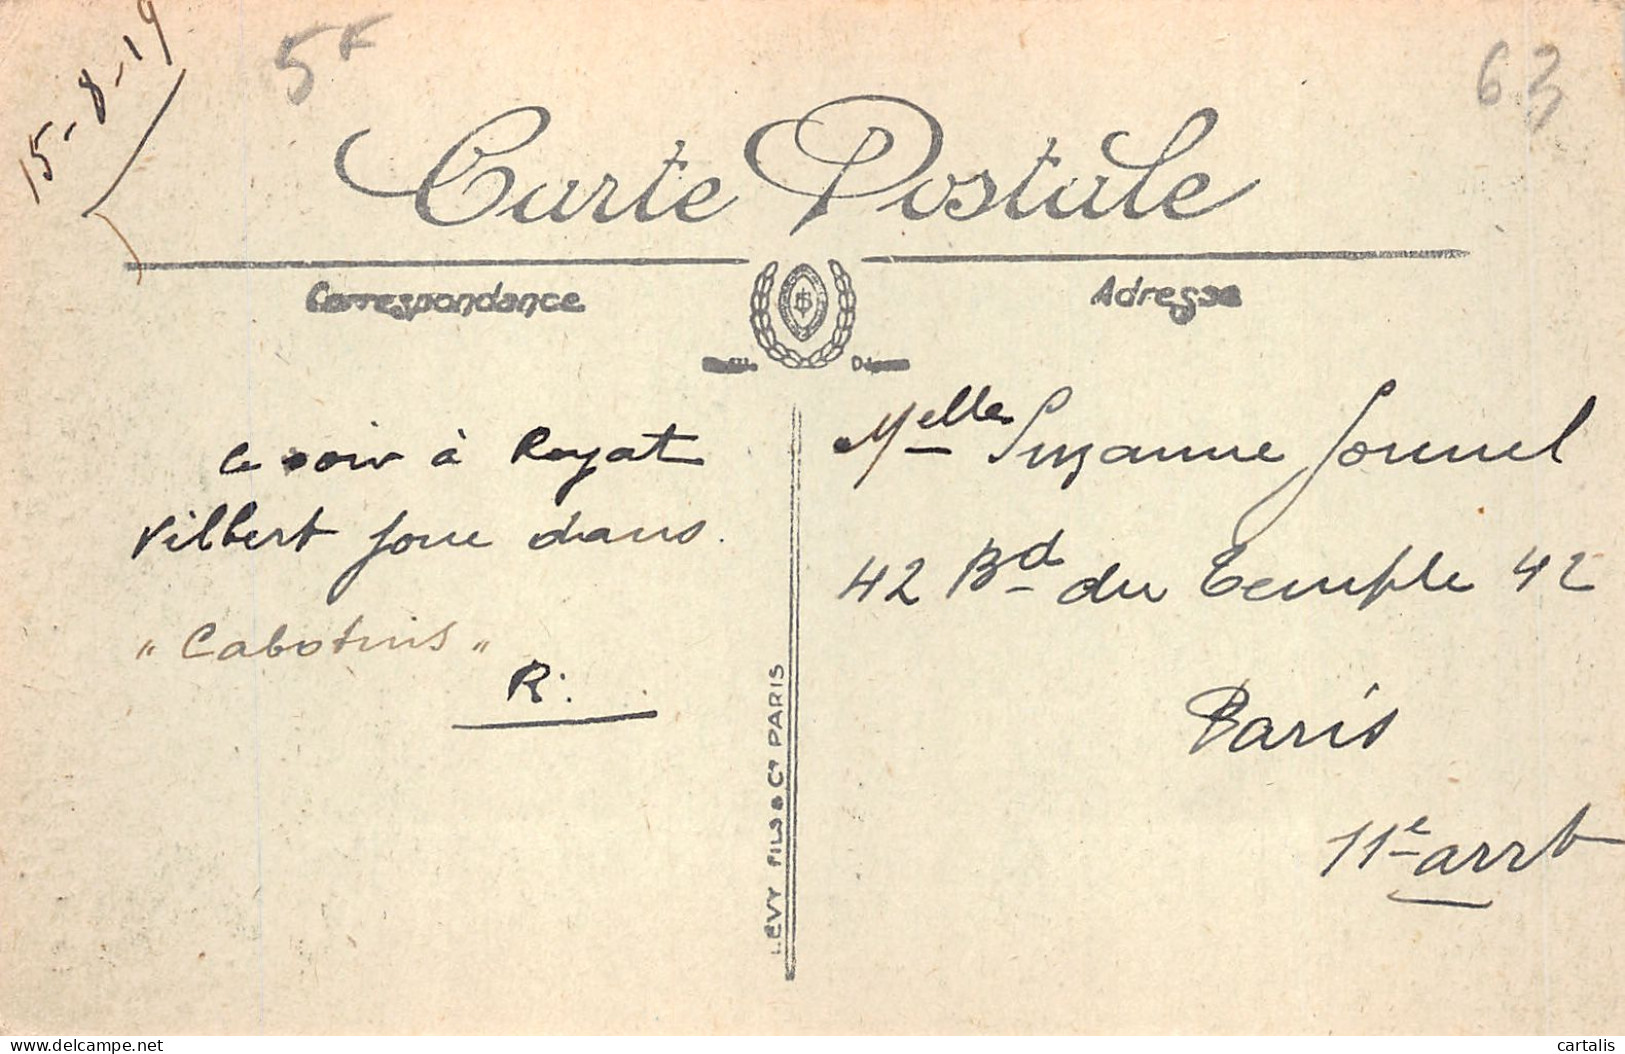 15-8-19
5F
63
Carte Postale
Correspondance
Adresse
ce soir à Royat
Vilbert joue dans
"Cabotins"
R.
Melle Suzanne
42 Bd du Temple 42
Paris
11e arrt
LÉVY FILS & Cie PARIS
cartalis
delcampe.net